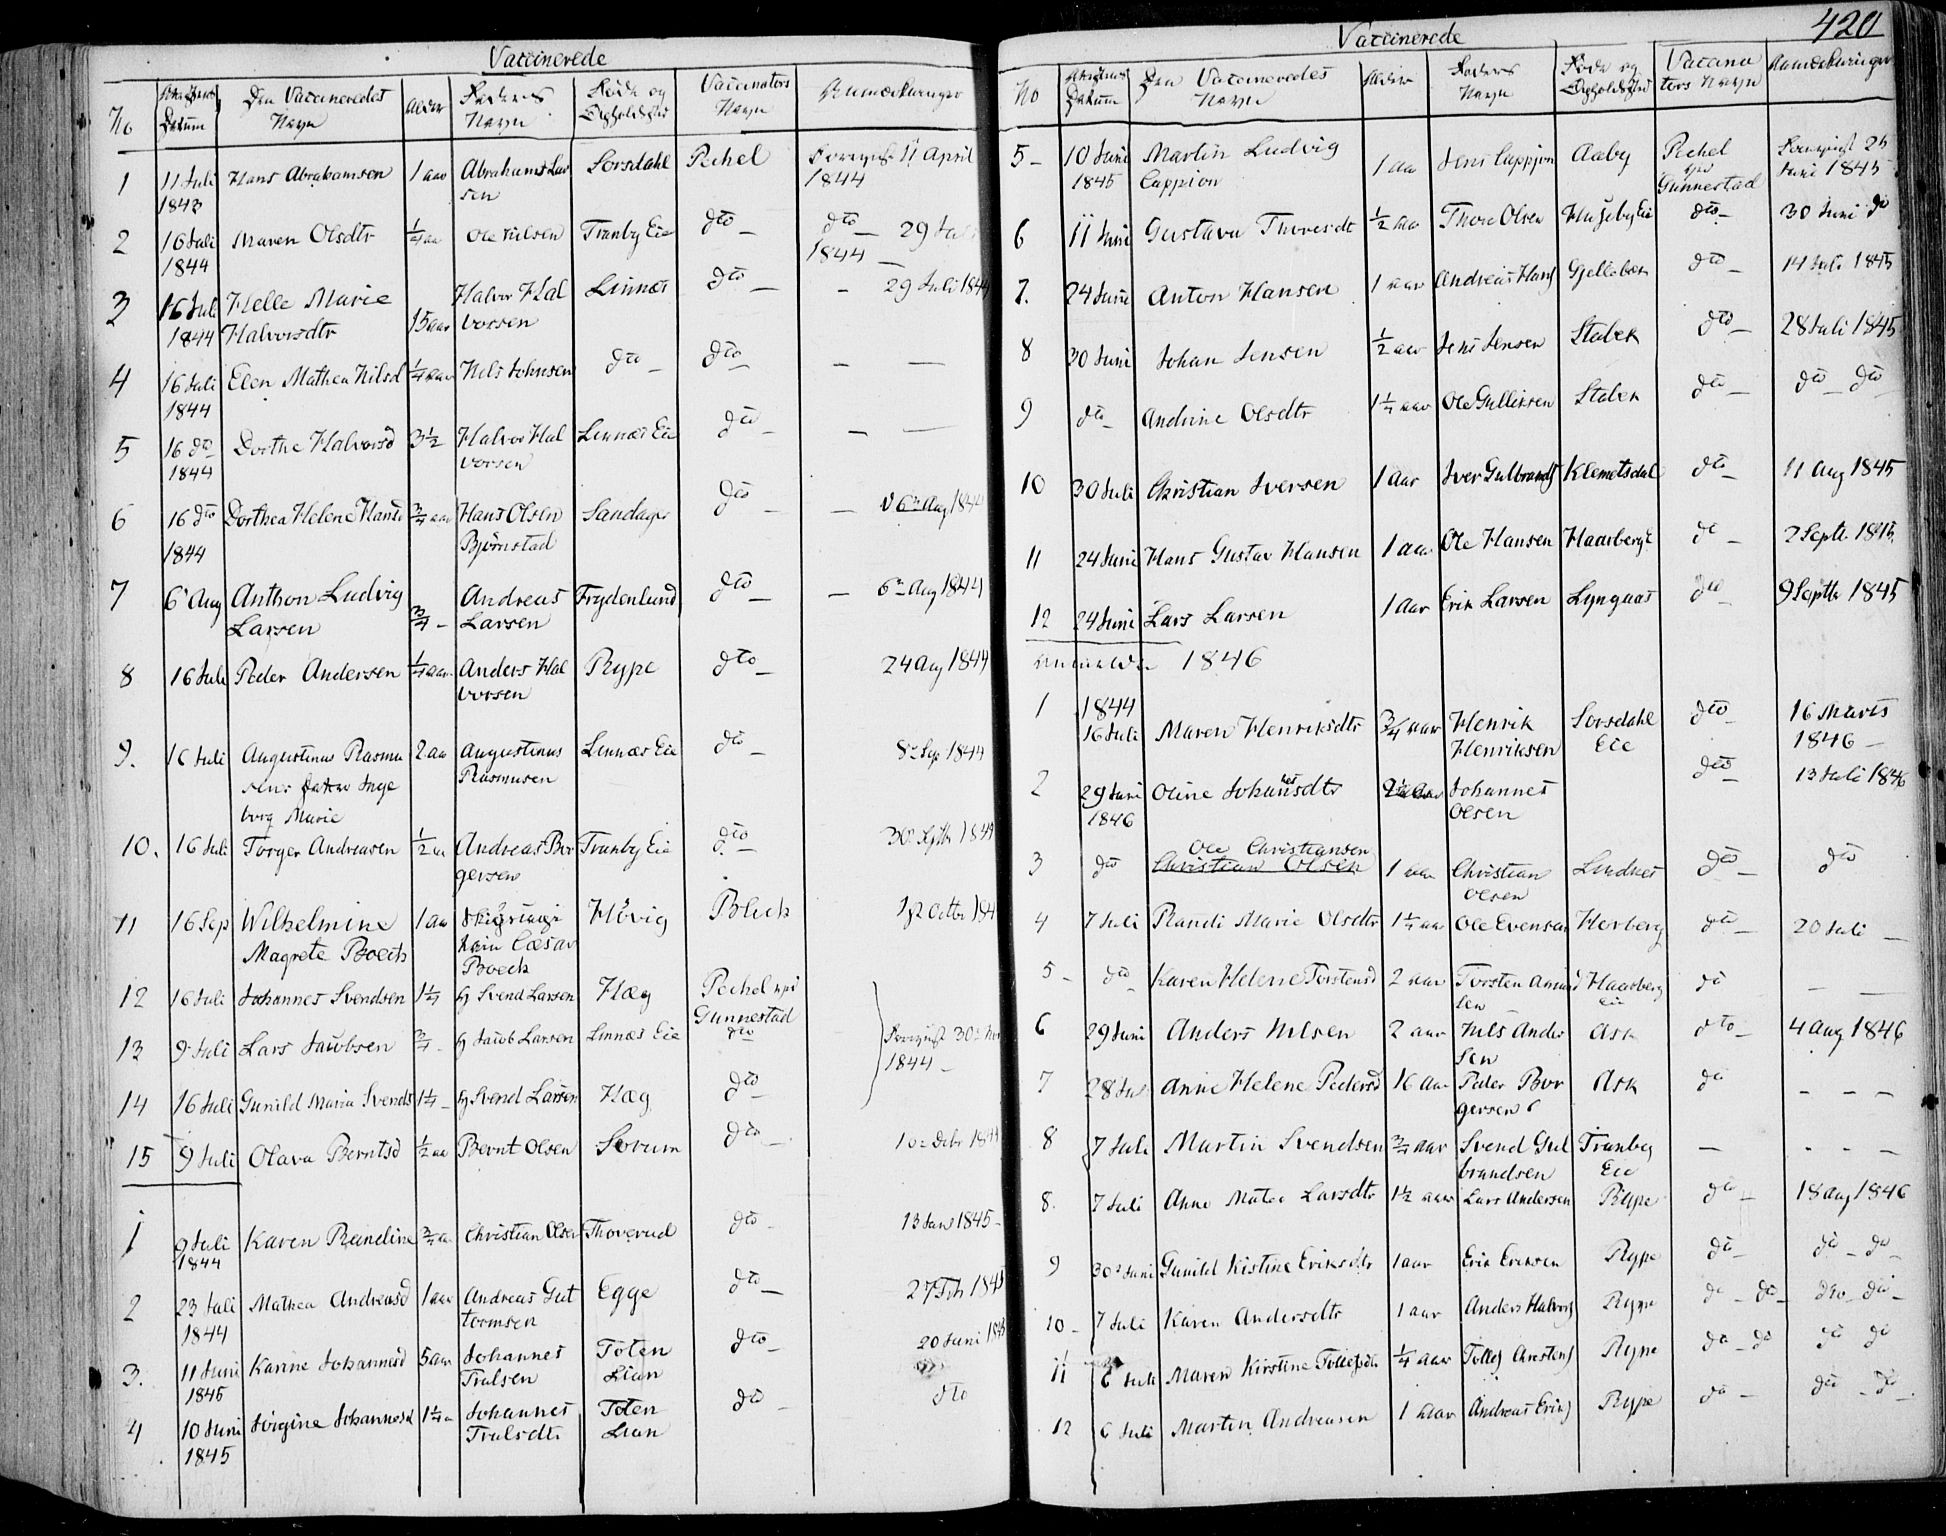 Vaccinerede
No Attestens Datum Den Vaccineredes Navn Alder Faderens Navn Føde og Opholdssted Vaccinators Navn Anmærkninger
1 11 Juli 1843 Hans Abrahamsen 1 aar Abraham Larsen Sorsdahl Pechel 11 April 1844
2 16 Juli 1844 Maren Olsdtr 1/4 aar Ole Nilsen Tranby Eie dto dto 29 Juli 1844
3 16 Juli 1844 Helle Marie Halvorsdtr 15 aar Halvor Halvorsen Linnæs dto - 29 Juli 1844
4 16 Juli 1844 Elen Mathea Nilsd 1/4 aar Nils Johnsen dto dto - -
5 16 dto 1844 Dorthe Halvorsd 3 1/2 Halvor Halvorsen Linnæs Eie dto - -
6 16 dto 1844 Dorthea Helene Hansd 3/4 aar Hans Olsen Bjørnstad Sandager dto - 6 Aug 1844
7 6 Aug Anthon Ludvig Larsen 3/4 - Andreas Larsen Frydenlund dto - 6 Aug 1844
8 16 Juli Peder Andersen 1/4 aar Anders Halvorsen Rype dto 24 Aug 1844
9. 16 Juli Augustinus Rasmusens Datter Ingeborg Marie 2 aa Augustinus Rasmusen Linnæs Eie dto 8 Sep 1844
10. 16 Juli Torger Andreasen 1/2 aa Andreas Borgersen Tranby Eie dto 30 Septb 1844
11 16 Sep Wilhelmine Magrete Boeck 1 aa Cæsar Boeck Høvig Octbr 184
12 16 Juli Johannes Svendsen 1 1/4 Svend Larsen Hæg Pechel Gunnestad
13 9 Juli Lars Jacobsen 3/4 - Jacob Larsen Linnæs Eie dto 30 1844
14 16 Juli Gunild Maria Svends 1 1/4 - Svend Larsen Hæg dto
15 9 Juli Olava Berntsd 1/2 aa Bernt Olsen Sorum dto 10 Debr 1844
1 9 Juli 1844 Karen Randine 3/4 aa Christian Olsen Thoverud dto 13 Jan 1845
2 23 Juli 1844 Mathea Andreasd 1 aar Andreas Guttormsen Egge dto 27 Feb 1845
3. 11 Juni 1845 Karine Johannesd 5 aar Johannes Trulsen Toten Lian dto 20 Juni 1845
4 10 Juni 1845 Jørgine Johannesd 1 1/4 a Johannes Trulsdt Toten Lian dto dto
420
Vaccinerede
No Attestens Datum Den Vaccineredes Navn Alder Faderens Navn Føde og Opholdssted Vaccinators Navn Anmærkninger
5 - 10 Juni 1845 Martin Ludvig Cappion 1 aa Jens Cappjon Aaby Pechel Gunnestad 25 Juni 1845
6 11 Juni Gustava Thoresdt 1/2 aar Thore Olsen Husebye Eie dto 30 Juni do
7. 24 Juni Anton Hansen 1 aar Andreas Hans Gjellebæk dto 14 Juli 1845
8 30 Juni Johan Jensen 1/2 aar Jens Jensen Stabek dto 28 Juli 1845
9 dto Andrine Olsdtr 1 1/4 aar Ole Gulliksen Stabek dto dto dto
10 30 Juli Christian Iversen 1 Aar Iver Gulbrands Klemetsdal dto 11 Aug 1845
11 24 Juni Hans Gustav Hansen 1 aar Ole Hansen Haarberg E do 2 Septb 1845
12 24 Juni Lars Larsen 1 Aar Erik Larsen Lynguas dto 9 Septb 1845
1846
1 1844 16 Juli Maren Henriksdtr 3/4 aar Henrik Henriksen Sorsdahl Eie dto 16 Marts 1846
2 29 Juni 1846 Oline Johannesdtr Johannes Olsen dto 13 Juli 1846
3 dto Ole Christiansen Christian Olsen 1 aar Christian Olsen Lindnes dto dto
4 7 Juli Randi Marie Olsdtr 1 1/4 aar Ole Evensen Horberg dto 20 Juli -
5 - dto Karen Helene Torstensd 2 aar Torsten Haarberg Eie do - -
6 29 Juni Anders Nilsen 2 aar Nils Andersen Ask dto 4 Aug 1846
7 28 Anne Helene Pedersd 16 Aar Peder Borgersen Ask do - - -
8 7 Juli Martin Svendsen 3/4 aar Svend Gulbrandsen Tranby Eie - - - -
8. 7 Juli Anne Matea Larsdtr 1 1/2 aar Lars Andersen Rype do 18 Aug 1846
9 30 Juni Gunild Kistine Eriksdtr 1 aar Erik Eriksen Rype do do do
10 - 7 Juli Karen Andersdtr 1 aar Anders Halvors Rype do do dto do
11 6 Juli Maren Kirstine Tollefsdtr 1/4 aar Tollef Christens Rype do do do do
12 6 Juli Martin Andreasen 1 aar Andreas Eriks Rype do do do